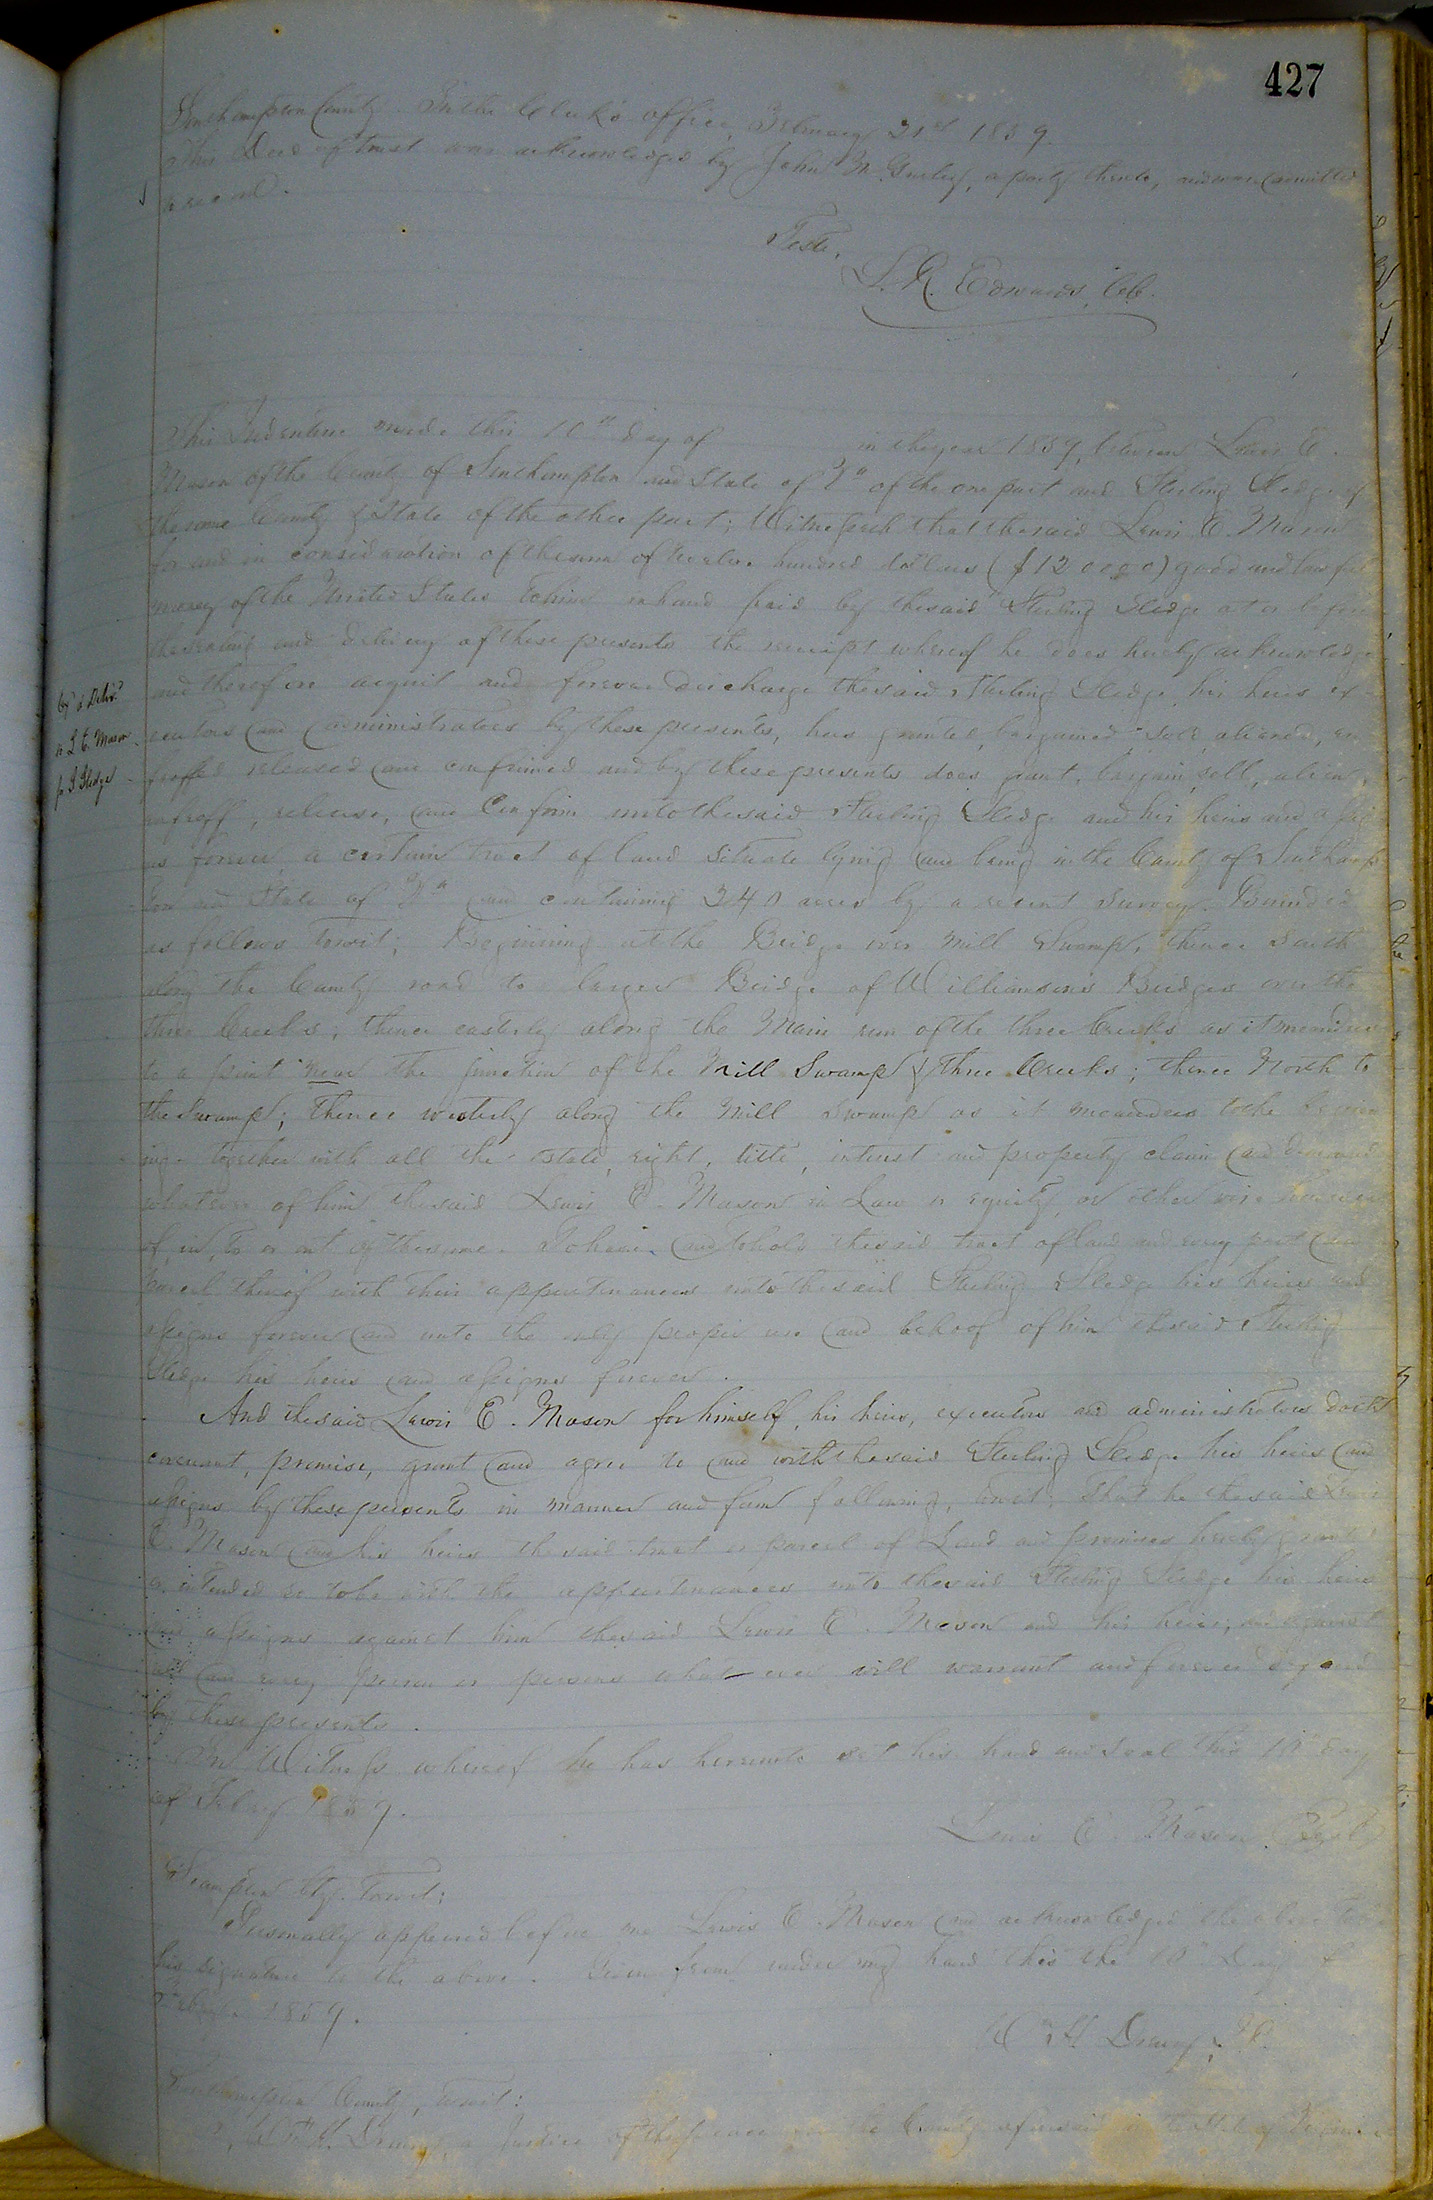 427
Southampton County. In the Clerk's office, February 21st 1859.
This Deed of trust was acknowledged by John N. Gurley, a party thereto, and was admitted
to record.
Teste,
L. R. Edwards, Clk.
This Indenture made this 10th day of in the year 1859, between Lewis E.
Mason of the County of Southampton and State of Va of the one part and Sterling Sledge of
the same County & State of the other part; Witnesseth that the said Lewis E. Mason
for and in consideration of the sum of twelve hundred dollars ($1200 00) good and lawful
money of the United States to him in hand paid by the said Sterling Sledge at or before
the sealing and delivery of these presents the receipt whereof he does hereby acknowledge
and therefore acquit and forever discharge the said Sterling Sledge, his heirs ex-
ecutors and administrators by these presents, has granted, bargained, sold, aliened, en-
feoffed released and confirmed and by these presents does grant, bargain, sell, alien,
enfeoff, release, and confirm unto the said Sterling Sledge and his heirs and assig
ns forever a certain tract of land situate lying and being in the County of Southamp
ton and State of Va and containing 340 acres by a recent survey. Bounded
as follows towit; Beginning at the Bridge over Mill Swamp, thence South
along the County road to larger Bridge of Williamson's Bridges over the
three Creeks, thence easterly along the Main run of the three Creeks as it meanders
to a point near the junction of the Mill Swamp & three Creeks; thence North to
the Swamp; thence westerly along the Mill Swamp as it meanders to the beginn
ing. together with all the estate, right, title, interest and property claim and demand
whatever of him the said Lewis E. Mason in Law or equity, or otherwise however
of, in, to or out of the same. To have and to hold the said tract of land and every part and
parcel thereof with their appurtenances unto the said Sterling Sledge his heirs and
assigns forever and unto the only proper use and behoof of him the said Sterling
Sledge his heirs and assigns forever.
And the said Lewis E. Mason for himself, his heirs, executors and administrators doth
covenant, promise, grant and agree to and with the said Sterling Sledge his heirs and
assigns by these presents in manner and form following, towit; that he the said Lewis
E. Mason and his heirs the said tract or parcel of Land and premises hereby granted
or intended so to be with the appurtenances unto the said Sterling Sledge his heirs
and assigns against him the said Lewis E. Mason and his heirs, and against
all and every person or persons whatever will warrant and forever defend
by these presents.
In Witness whereof he has hereunto set his hand and seal this 10th day
of Feby 1859.
Lewis E. Mason Seal
S'hampton Cty. Towit:
Personally appeared before me Lewis E. Mason and acknowledged the above to be
his signature to the above. Given from under my hand this the 10th Day of
Feby. 1859.
W H Drewry, J.P.
Southampton County, towit:
Drewry a Justice of the Peace the County aforesaid in the State of Virginia
to L. E. Mason
S Sledge